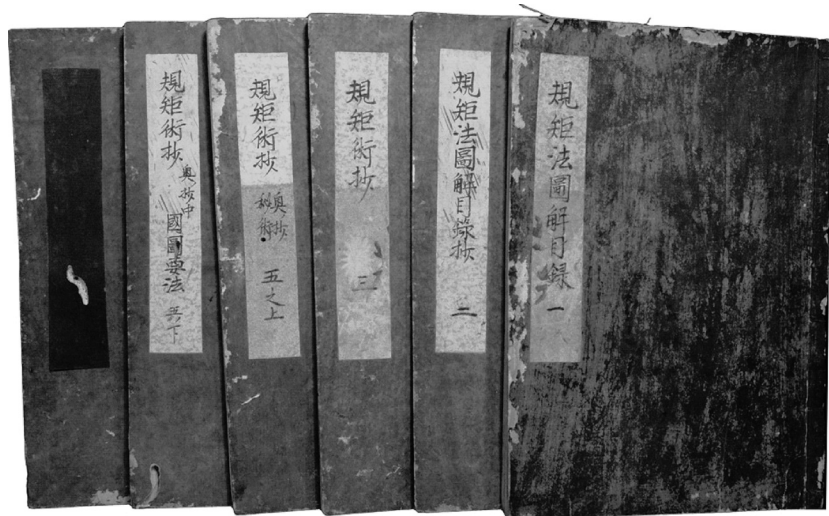 規矩法圖解目録 一
規矩法圖解目錄抄 二
規矩術抄 三
規矩術抄 奥抄 秘術 五之上
規矩術抄 奥抄中 國圖要法 五下